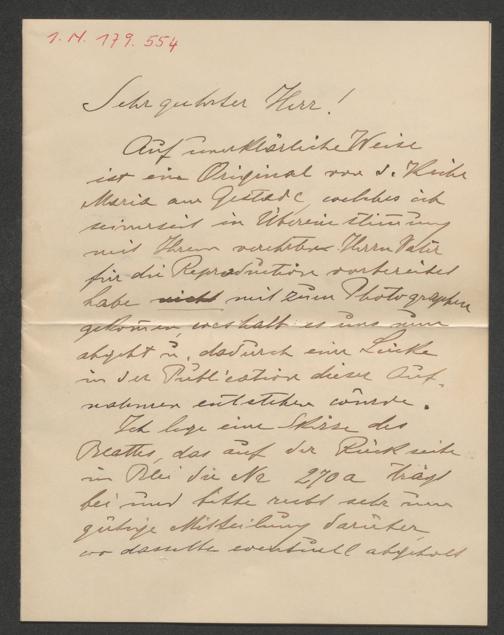 1. N. 179.554
Sehr geehrter Herr!
Auf unerklärliche Weise
ist ein Original von d. Kirche
Maria am Gestade, welches ich
seinerzeit in Übereinstimmung
mit Ihrem verehrten Herrn Vater
für die Reproduction vorbereitet
habe nicht mit zum Photographen
gekommen, weshalb es uns nun
abgeht u. dadurch eine Lücke
in der Publication dieser Auf-
nahmen entstehen würde.
Ich lege eine Skizze des
Blattes, das auf der Rückseite
in Blei die Nr 270a trägt
bei und bitte recht sehr um
gütige Mitteilung darüber,
wo dasselbe eventuell abgeholt